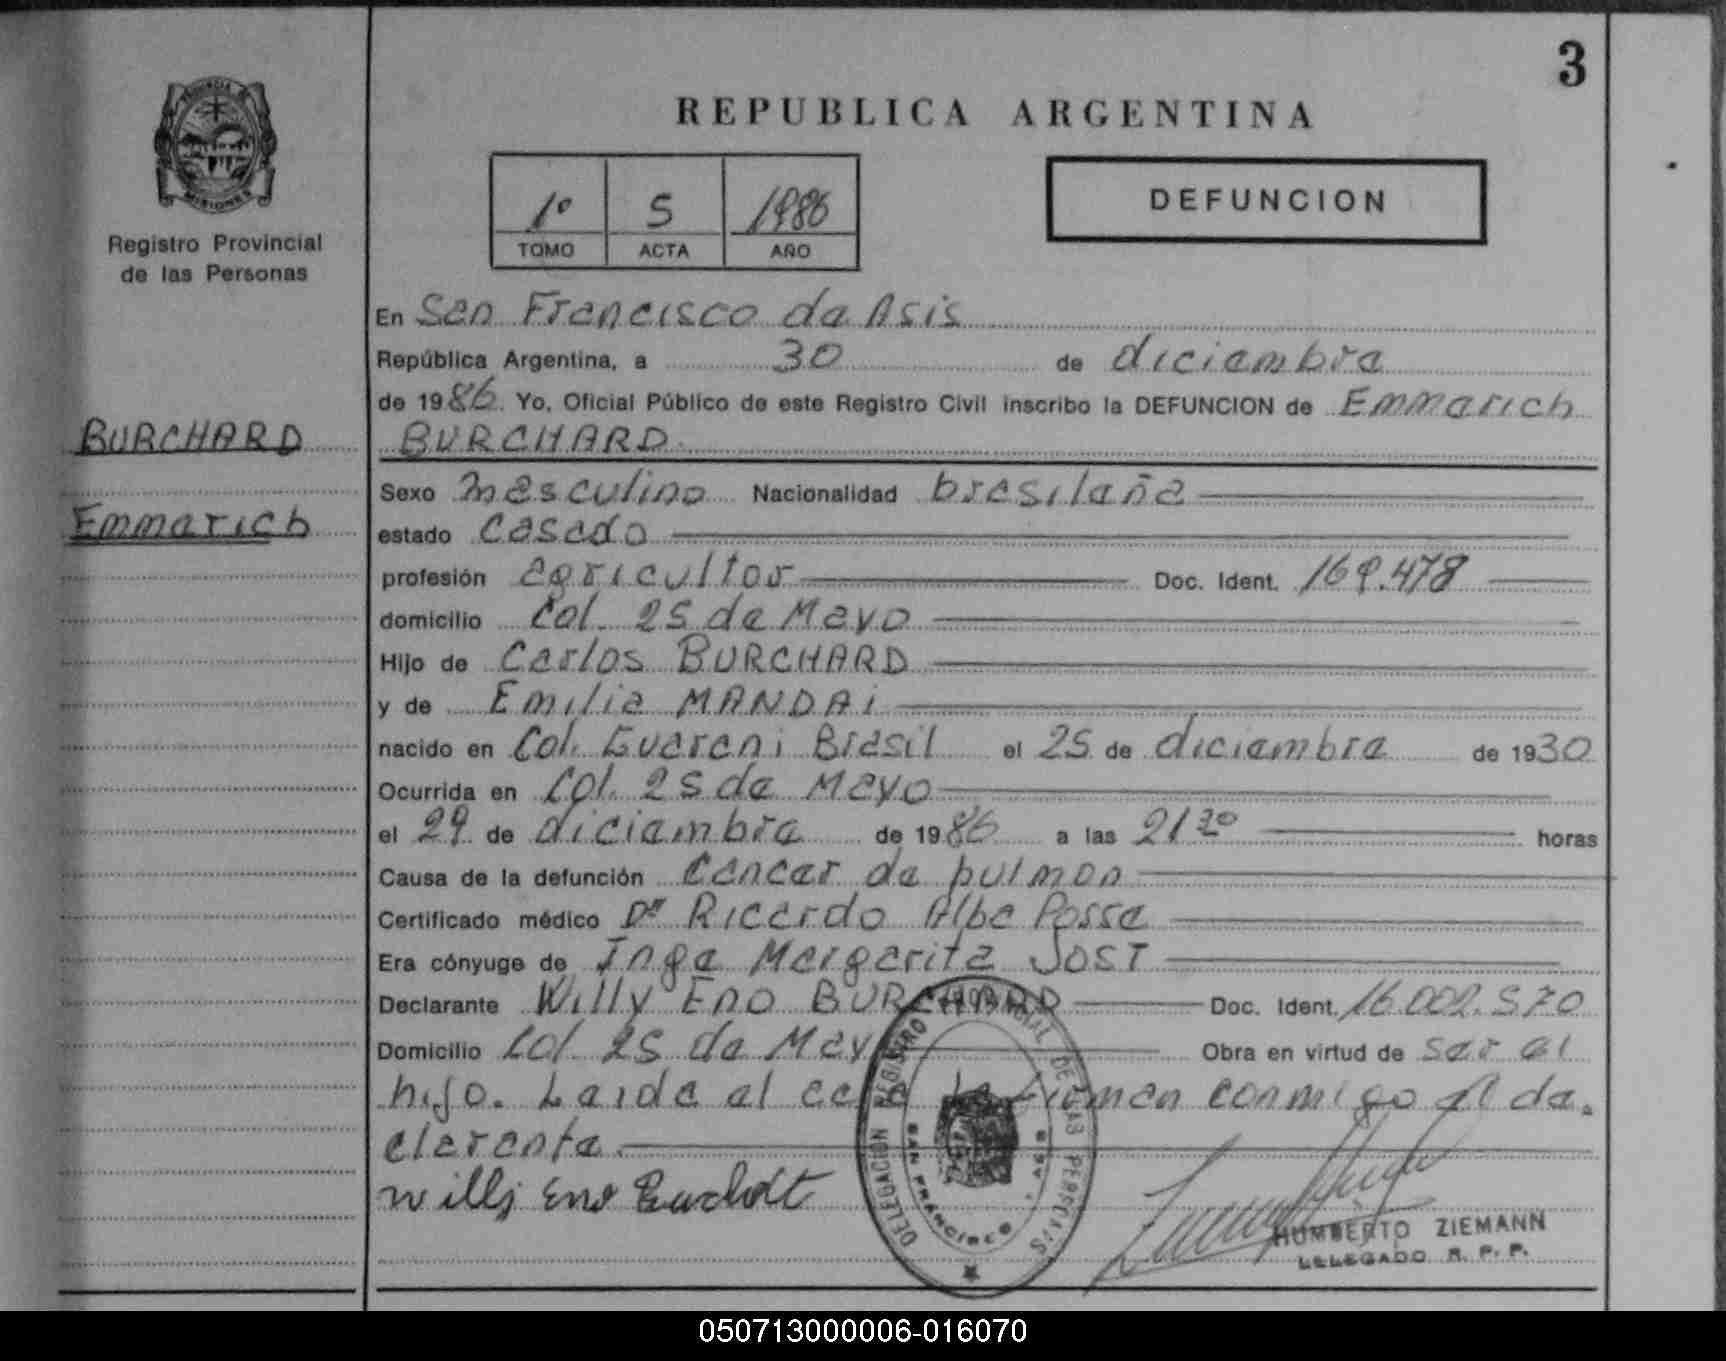 3
REPUBLICA ARGENTINA
PROVINCIA DE
MISIONES
Registro Provincial
de las Personas
1º 5 1986
TOMO ACTA AÑO
DEFUNCION
En San Francisco de Asis
República Argentina, a 30 de diciembre
de 1986. Yo, Oficial Público de este Registro Civil inscribo la DEFUNCION de Emmerich
BURCHARD
BURCHARD.
Sexo masculino Nacionalidad brasileña
Emmerich
estado Casado
profesión agricultor Doc. Ident. 169.478
domicilio Col. 25 de Mayo
Hijo de Carlos BURCHARD
y de Emilia MANDAi
nacido en Col. Guarani Brasil el 25 de diciembre de 1930
Ocurrida en Col. 25 de Mayo
el 29 de diciembre de 1986 a las 21 30 horas
Causa de la defunción Cancer de pulmon
Certificado médico Dr Ricardo Alba Posse
Era cónyuge de Inge Margarita JOST
Declarante Willy Eno BURCHARD Doc. Ident. 16.002.570
Domicilio Col 25 de May Obra en virtud de ser el
hijo. Leida el ac la Firman conmigo el de.
clarante.
Willy Eno Burchdt
DELEGACION REGISTRO PROVINCIAL DE LAS PERSONAS
SAN FRANCISCO ASIS
HUMBERTO ZIEMANN
DELEGADO R. P. P.
050713000006-016070